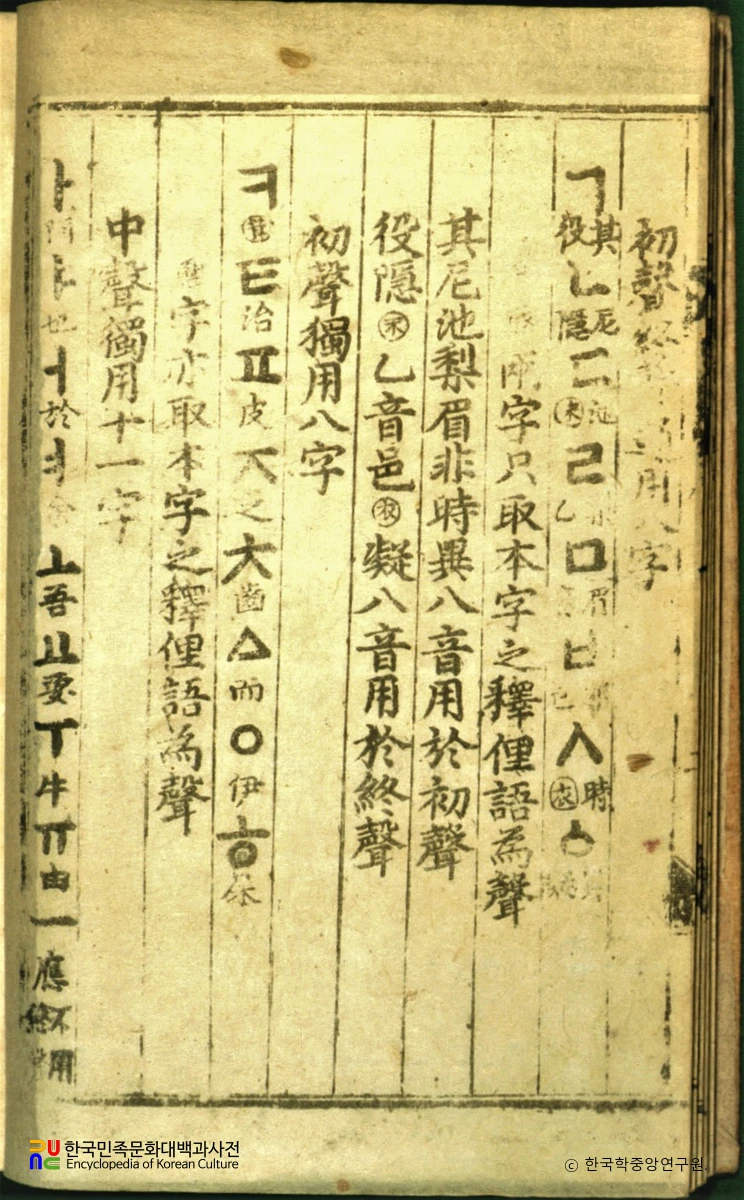 初聲終聲通用八字
ㄱ其役ㄴ尼隱ㄷ池末ㄹ梨乙ㅁ眉音ㅂ非邑ㅅ時衣ㆁ異
兩字只取本字之釋俚語為聲
其尼池梨眉非時異八音用於初聲
役隱末乙音邑衣凝八音用於終聲
初聲獨用八字
ㅋ箕ㅌ治ㅍ皮ㅈ之ㅊ齒ㅿ而ㅇ伊ㅎ屎
箕字亦取本字之釋俚語為聲
中聲獨用十一字
ㅏ阿ㅑ也ㅓ於ㅕ余ㅗ吾ㅛ要ㅜ牛ㅠ由ㅡ應不用終聲
한국민족문화대백과사전
Encyclopedia of Korean Culture
© 한국학중앙연구원